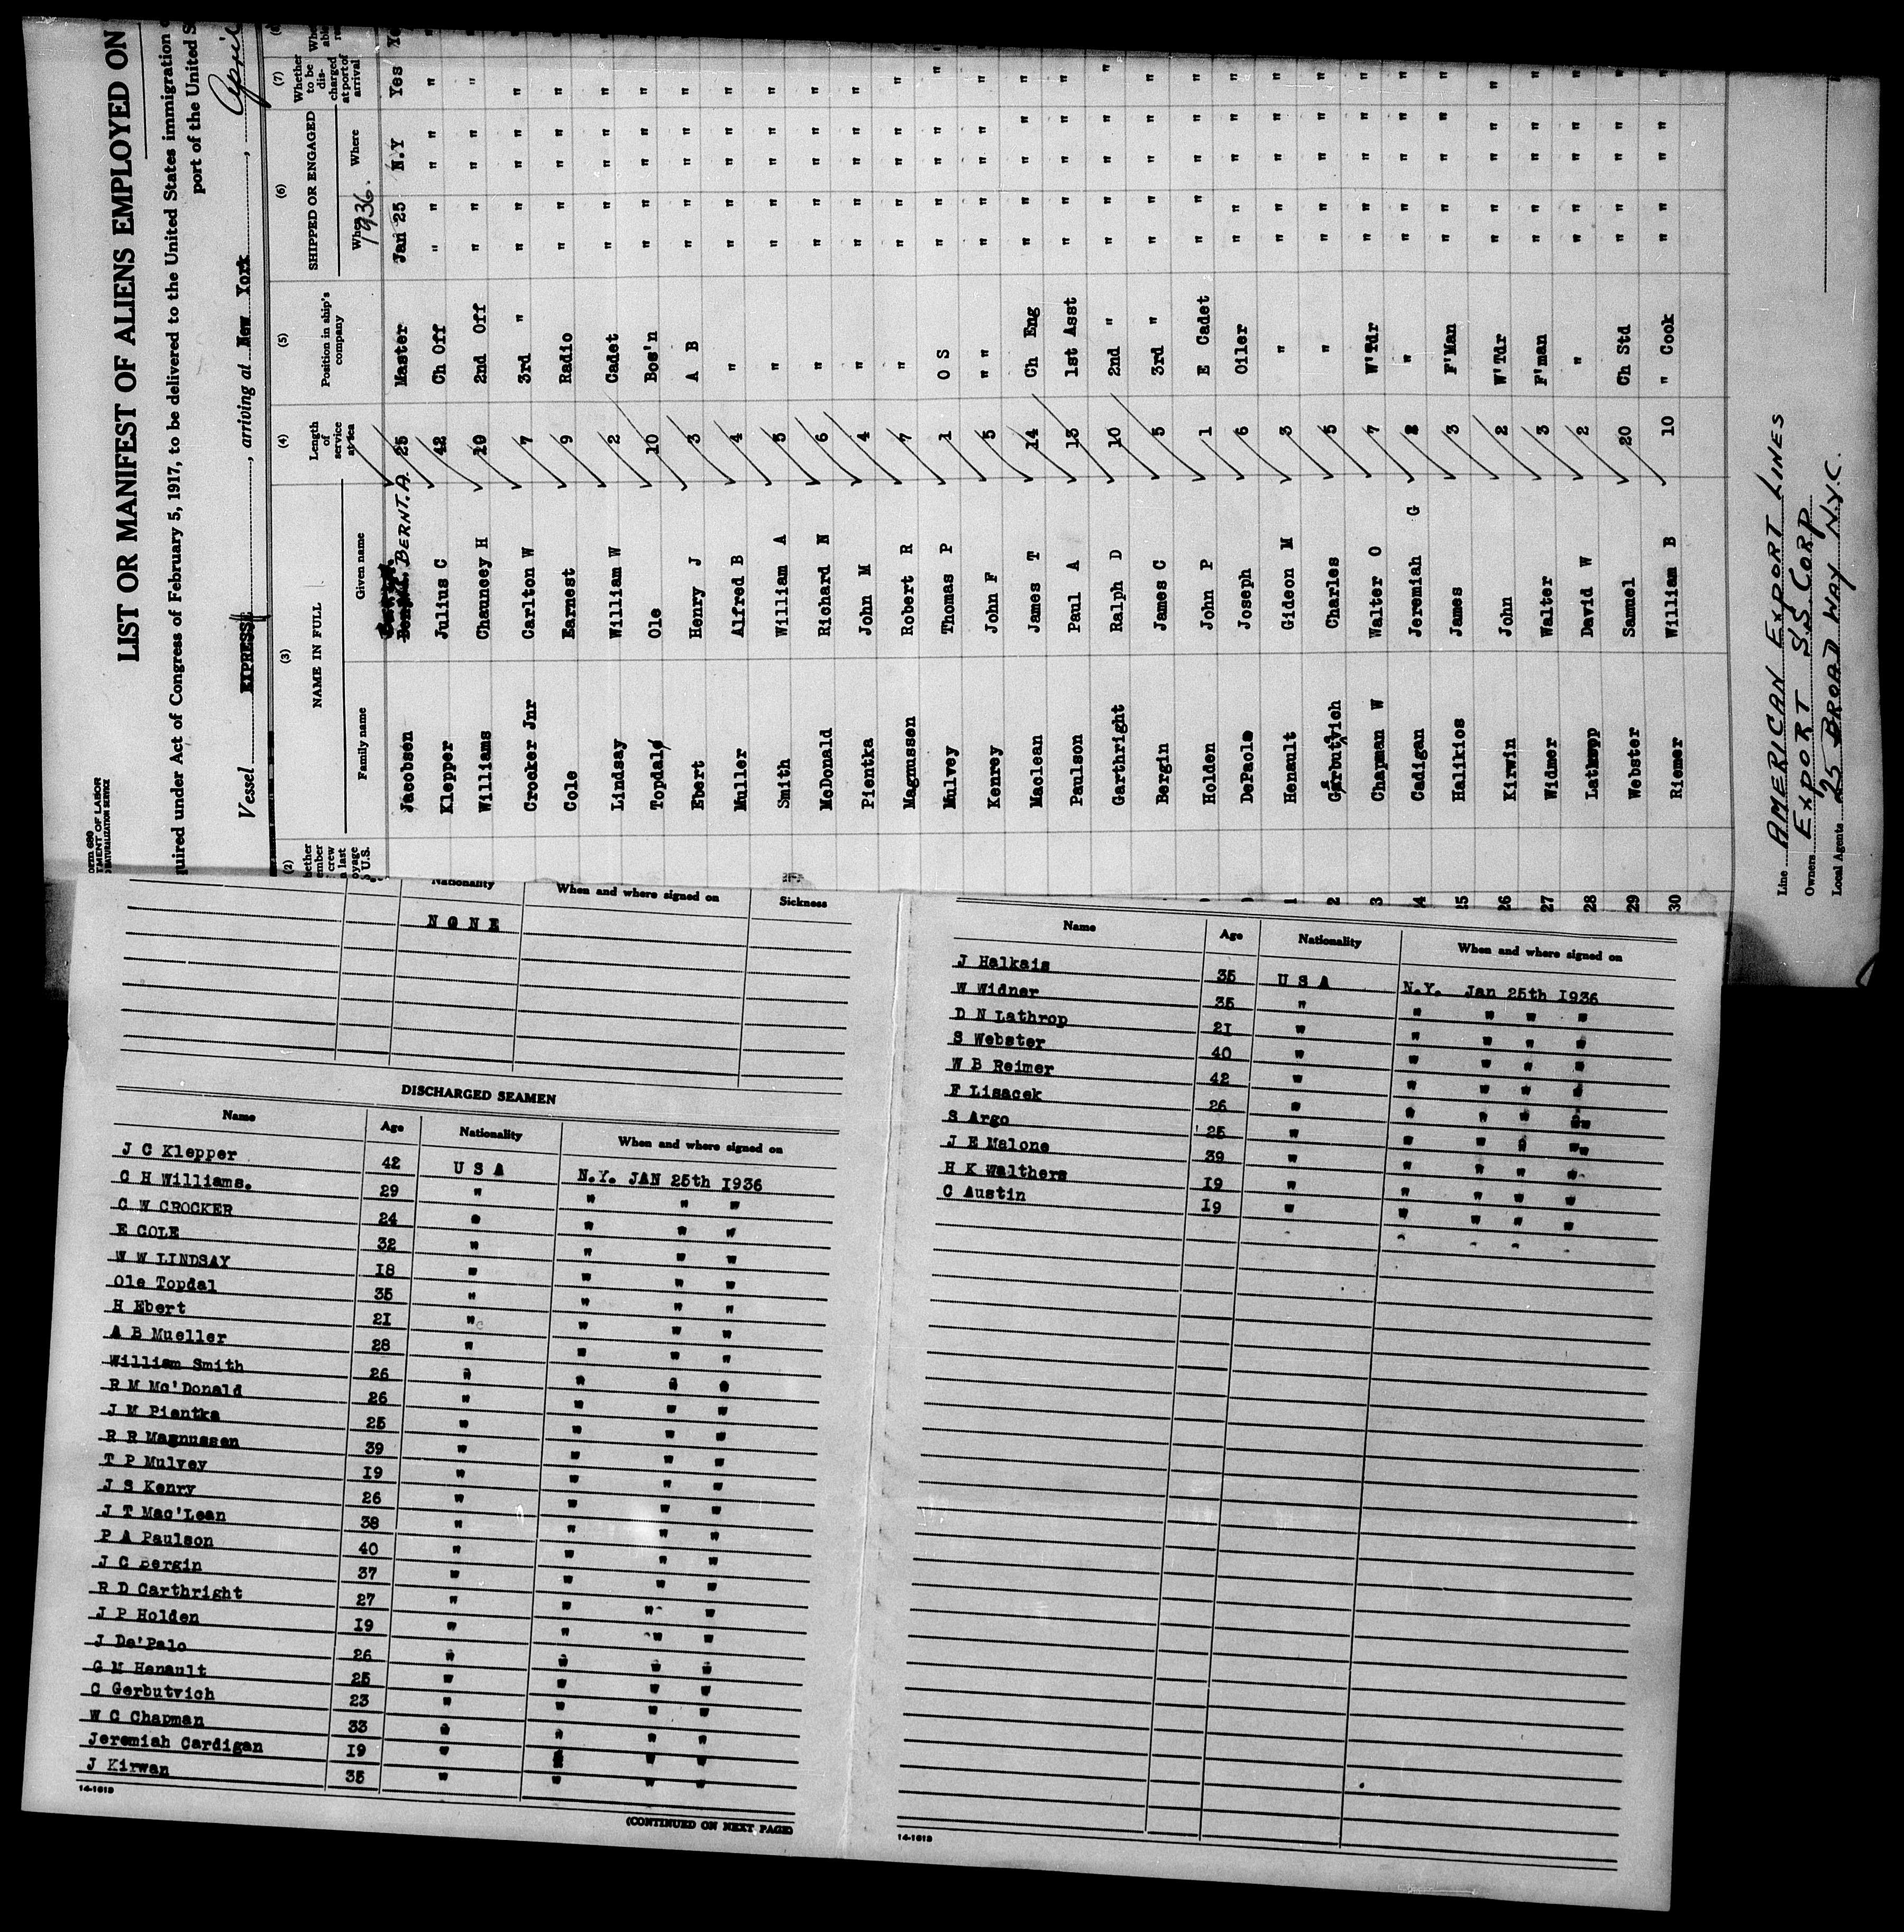 Form 689
LIST OR MANIFEST OF ALIENS EMPLOYED ON
quired under Act of Congress of February 5, 1917, to be delivered to the United States immigration
port of the United S
Vessel EXPRESS, arriving at New York, April
(2) (3) NAME IN FULL (4) Length of service at sea (5) Position in ship's company (6) SHIPPED OR ENGAGED (7) Whether to be discharged at port of arrival
Family name Given name When Where
1936.
Jacobsen BERNT.A. 25 Master Jan 25 N.Y Yes Ye
Klepper Julius C 42 Ch Off " " " " "
Williams Chauncey H 19 2nd Off " " " " "
Crocker Jnr Carlton W 7 3rd " " " " " "
Cole Earnest 9 Radio " " " " "
Lindsay William W 2 Cadet " " " " "
Topdal Ole 10 Bos'n " " " " "
Ebert Henry J 3 A B " " " " "
Muller Alfred B 4 " " " " " "
Smith William A 5 " " " " " "
McDonald Richard N 6 " " " " " "
Pientka John M 4 " " " " " "
Magnussen Robert R 7 " " " " " "
Mulvey Thomas P 1 O S " " " " "
Kenrey John F 5 " " " " " " "
Maclean James T 14 Ch Eng " " " " "
Paulson Paul A 13 1st Asst " " " " "
Garthright Ralph D 10 2nd " " " " " "
Bergin James C 5 3rd " " " " " "
Holden John P 1 E Cadet " " " " "
DePaolo Joseph 6 Oiler " " " " "
1 Henault Gideon M 3 " " " " " "
2 Garbutvich Charles 5 " " " " " "
3 Chapman W Walter O 7 W'Tdr " " " " "
4 Cadigan Jeremiah G 2 " " " " " "
25 Halikios James 3 F'Man " " " " "
26 Kirwin John 2 W'Tdr " " " " "
27 Widmer Walter 3 F'man " " " " "
28 Lathrop David W 2 " " " " " "
29 Webster Samuel 20 Ch Std " " " " "
30 Riemer William B 10 " Cook " " " " "
Line AMERICAN EXPORT LINES
Owners EXPORT S.S. CORP
Local Agents 25 BROADWAY N.Y.C.
Nationality When and where signed on Sickness
N O N E
DISCHARGED SEAMEN
Name Age Nationality When and where signed on
J C Klepper 42 U S A N.Y. JAN 25th 1936
C H Williams. 29 " " " "
C W CROCKER 24 " " " "
E COLE 32 " " " "
W W LINDSAY 18 " " " "
Ole Topdal 35 " " " "
H Ebert 21 " " " "
A B Mueller 28 " " " "
William Smith 26 " " " "
R M Mc'Donald 26 " " " "
J M Pientka 25 " " " "
R R Magnussen 39 " " " "
T P Mulvey 19 " " " "
J S Kenry 26 " " " "
J T Mac'Lean 38 " " " "
P A Paulson 40 " " " "
J C Bergin 37 " " " "
R D Carthright 27 " " " "
J P Holden 19 " " " "
J De'Palo 26 " " " "
G M Henault 25 " " " "
C Gerbutvich 23 " " " "
W C Chapman 33 " " " "
Jeremiah Cardigan 19 " " " "
J Kirwan 35 " " " "
14-1618
(CONTINUED ON NEXT PAGE)
Name Age Nationality When and where signed on
J Halkais 35 U S A N.Y. Jan 25th 1936
W Widner 35 " " " " "
D N Lathrop 21 " " " " "
S Webster 40 " " " " "
W B Reimer 42 " " " " "
F Lisacek 26 " " " " "
S Argo 25 " " " " "
J E Malone 39 " " " " "
H K Walthers 19 " " " " "
C Austin 19 " " " " "
14-1618